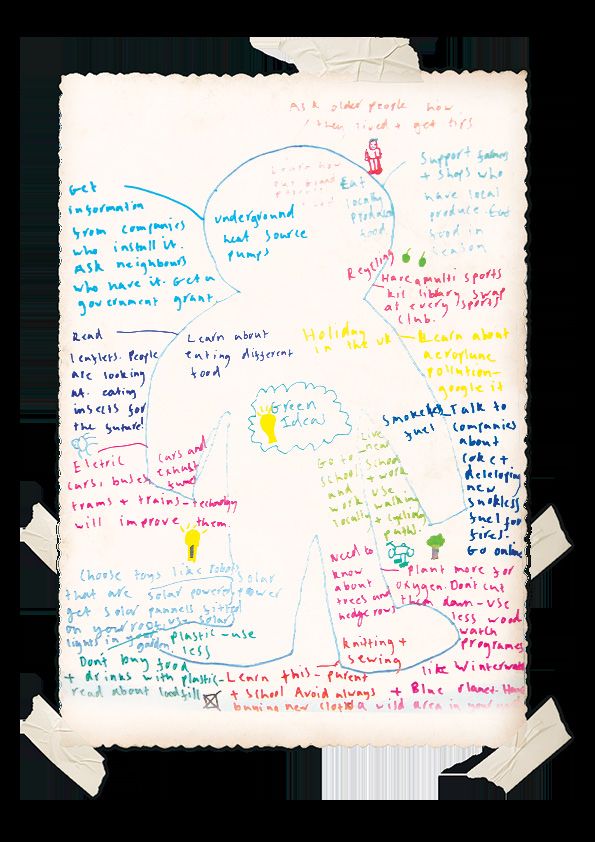 Ask older people how
they lived + get tips
Learn how
our
Support farmers
+ shops who
have local
produce. Eat
food in
season
Eat
locally
produced
food.
Get
information
from companies
who install it.
Ask neighbours
who have it. Get a
government grant
underground
heat source
pumps
Recycling
Have a multi sports
kit library swap
at every sports
club.
Read
leaflets. People
are looking
at eating
insects for
the future!
Learn about
eating different
food
Holiday
in the UK
Learn about
aeroplane
pollution-
google it
Green
Ideas
Smokeless
fuel
Talk to
companies
about
coke +
developing
new
smokless
fuel for
fires.
Go online
Eletric
cars, buses
trams + trains - technology
will improve them.
cars and
exhaust
fumes
Go to
school
and
work
locally
Live
near
school
+ work
use
walking
+ cycling
paths.
Need to
know
about
trees and
hedgerows
plant more for
oxygen. Dont cut
them down - use
less wood
watch
programes
like Winterwatch
+ Blue Planet. Have
a wild area in your
Choose toys like robots
that are solar powered,
get solar pannels fitted
on your roof, use solar
lights in your garden.
Solar
power
plastic - use
less
Don't buy food
+ drinks with plastic-
read about landfill
knitting +
sewing
Learn this - parent
+ school Avoid always
buying new clothes